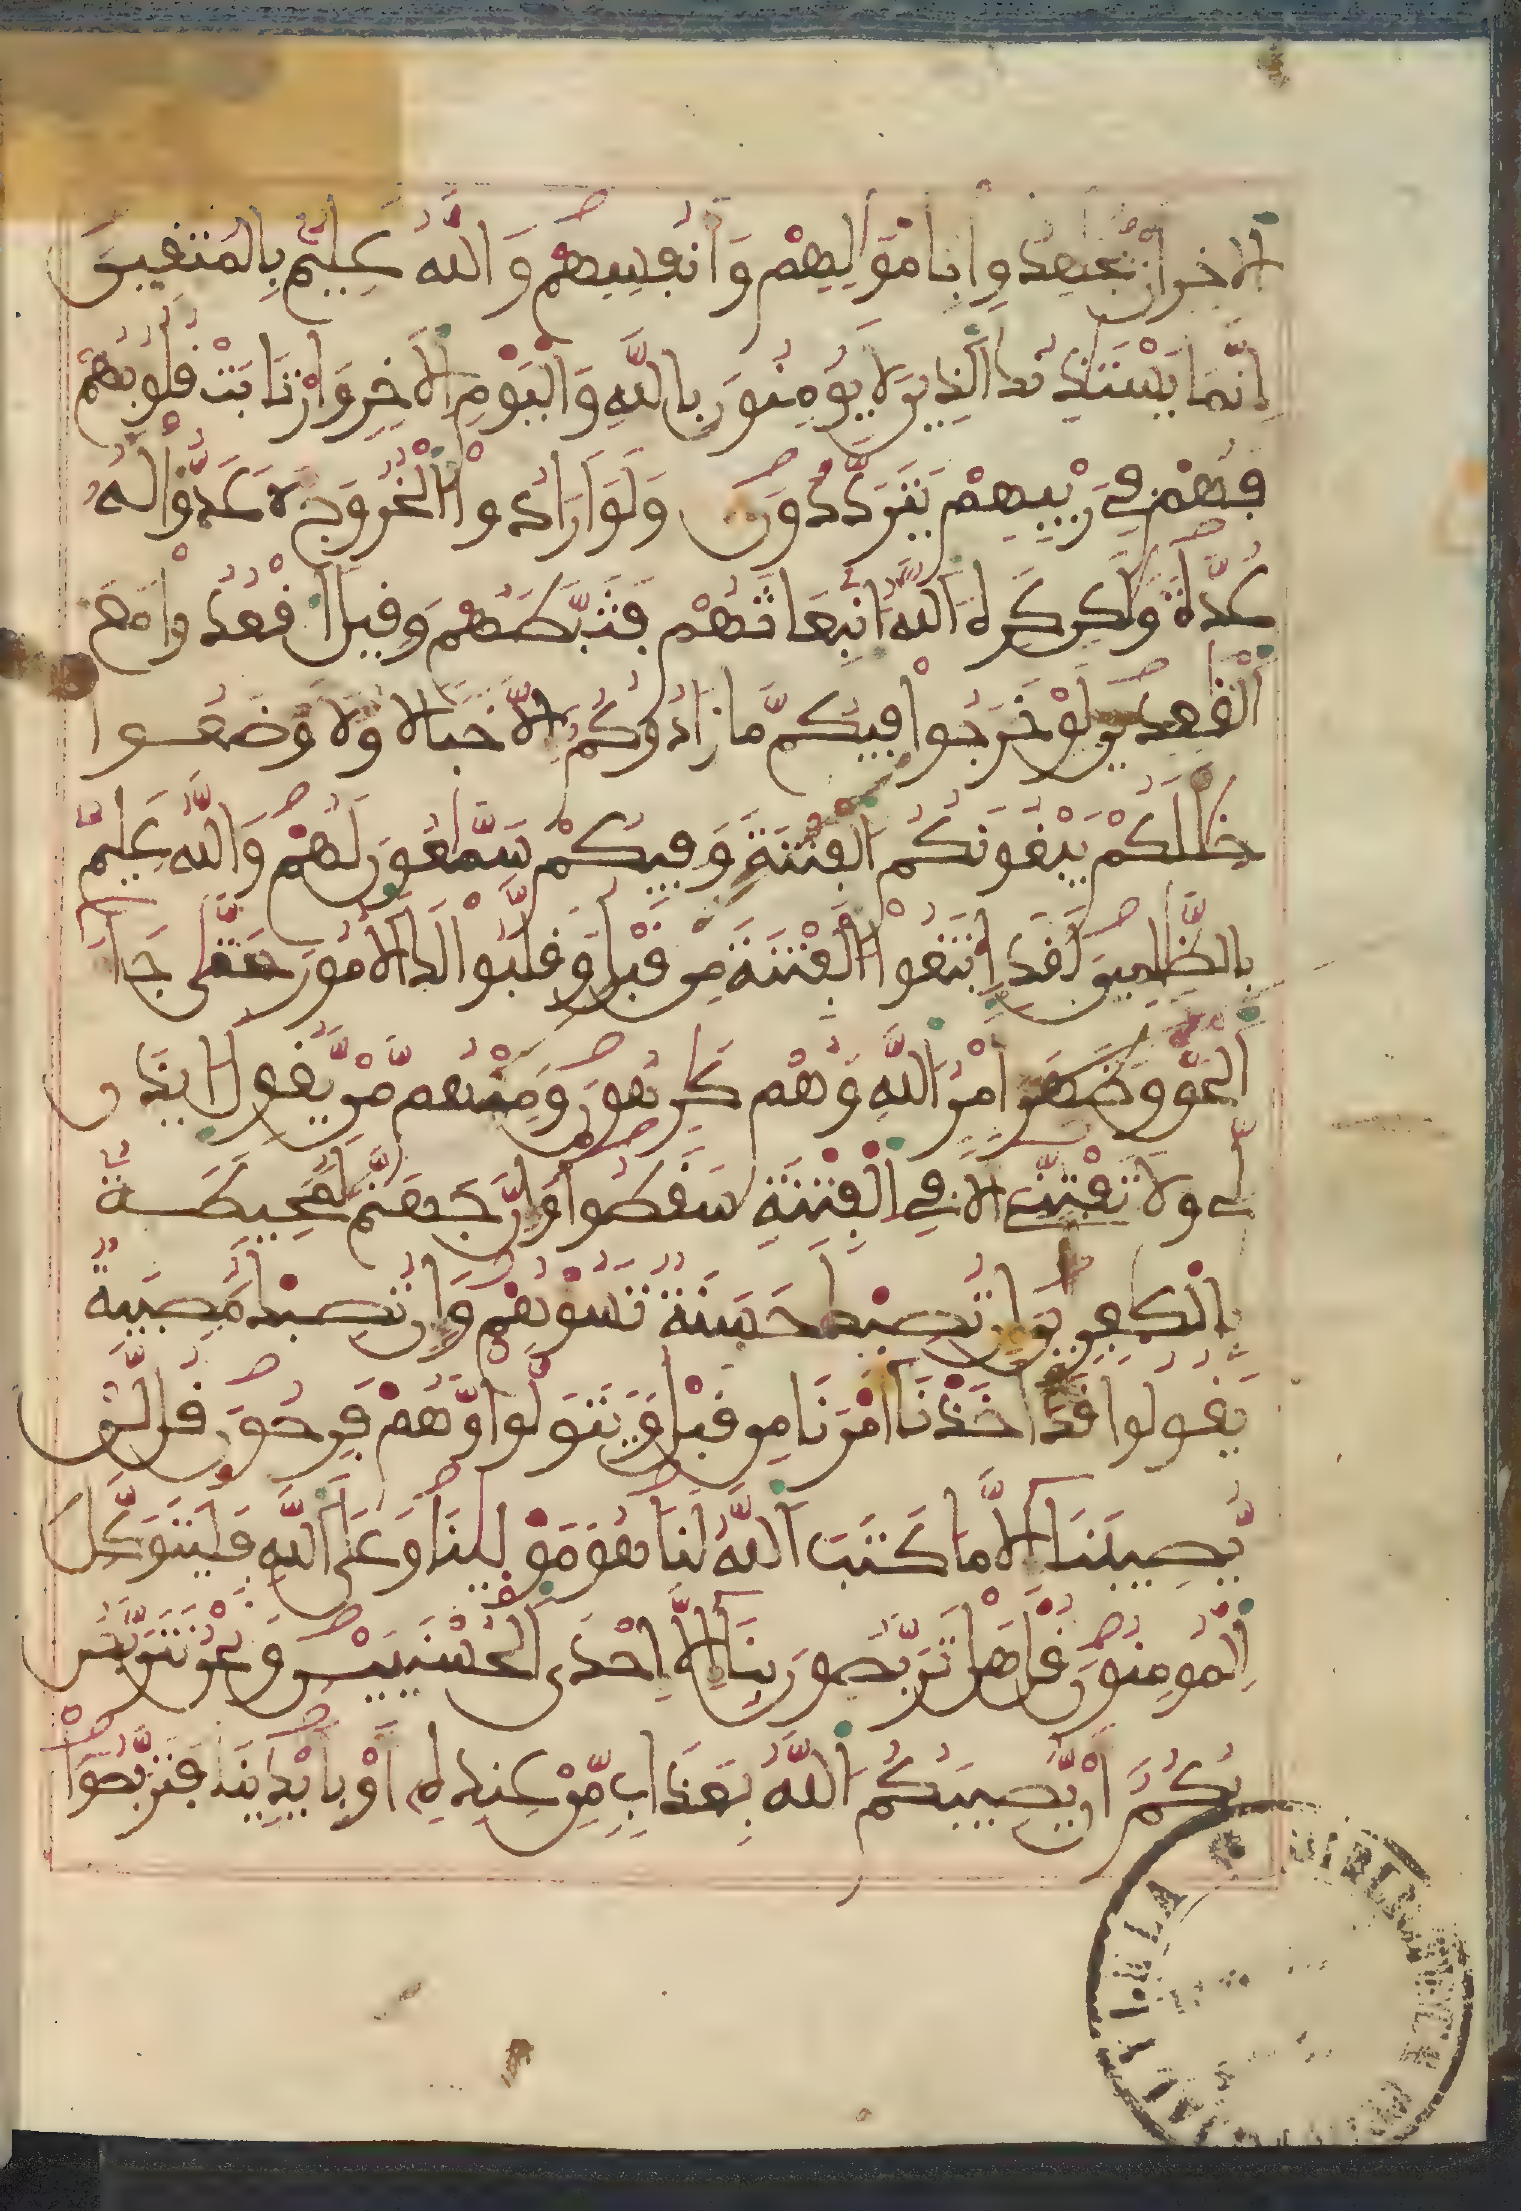 الاخر ان يجهدوا باموالهم وانفسهم والله عليم بالمتقين
انما يستذنك الذين لا يومنون بالله واليوم الاخر وارتابت قلوبهم
فهم في ريبهم يترددون ولو ارادوا الخروج لاعدوا له
عدة ولكن كره الله انبعاثهم فثبطهم وقيل اقعدوا مع
القعدين لو خرجوا فيكم ما زادوكم الا خبالا ولا وضعوا
خللكم يبغونكم الفتنة وفيكم سمعون لهم والله عليم
بالظلمين لقد ابتغوا الفتنة من قبل وقلبوا لك الامور حتى جا
الحق وظهر امر الله وهم كرهون ومنهم من يقول ايذن
لي ولا تفتني الا في الفتنة سقطوا وان جهنم لمحيطة
بالكفرين ان تصبك حسنة تسوهم وان تصبك مصيبة
يقولوا قد اخذنا امرنا من قبل ويتولوا وهم فرحون قل لن
يصيبنا الا ما كتب الله لنا هو مولينا وعلى الله فليتوكل
المومنون قل هل تربصون بنا الا احدى الحسنيين ونحن نتربص
بكم ان يصيبكم الله بعذاب من عنده او بايدينا فتربصوا